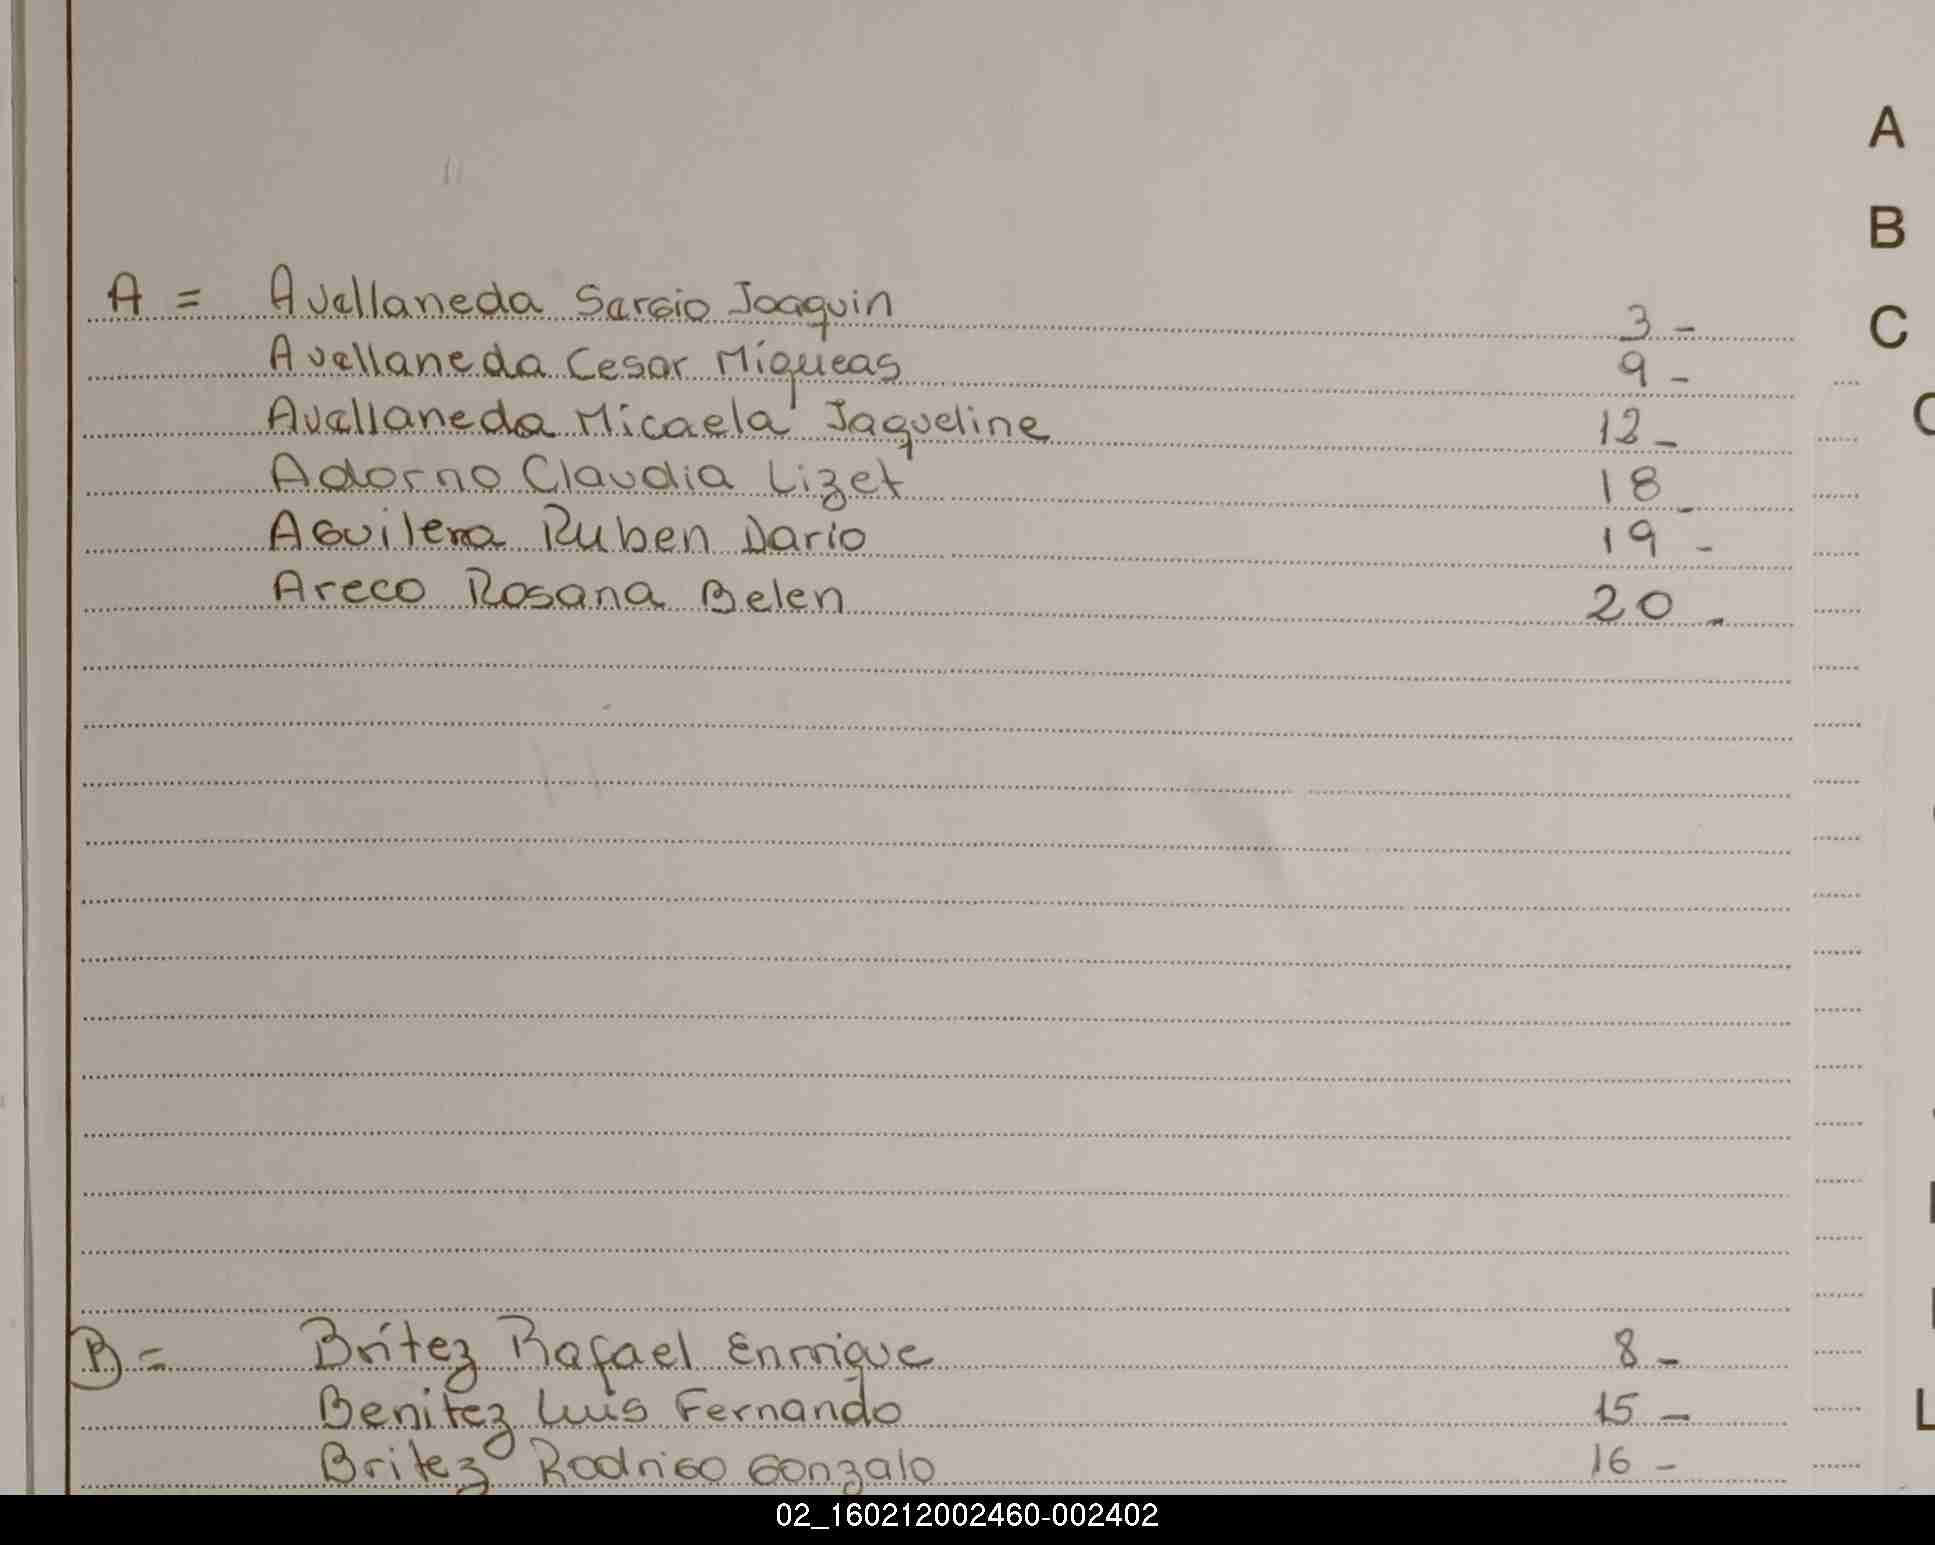 A
B
C
A = Avellaneda Sergio Joaquin 3 -
Avellaneda Cesar Miqueas 9 -
Avellaneda Micaela Jaqueline 12 -
Adorno Claudia Lizet 18 -
Aguilera Ruben Dario 19 -
Areco Rosana Belen 20 -
B = Britez Rafael Enrrique 8 -
Benitez Luis Fernando 15 -
Britez Rodrigo Gonzalo 16 -
02_160212002460-002402